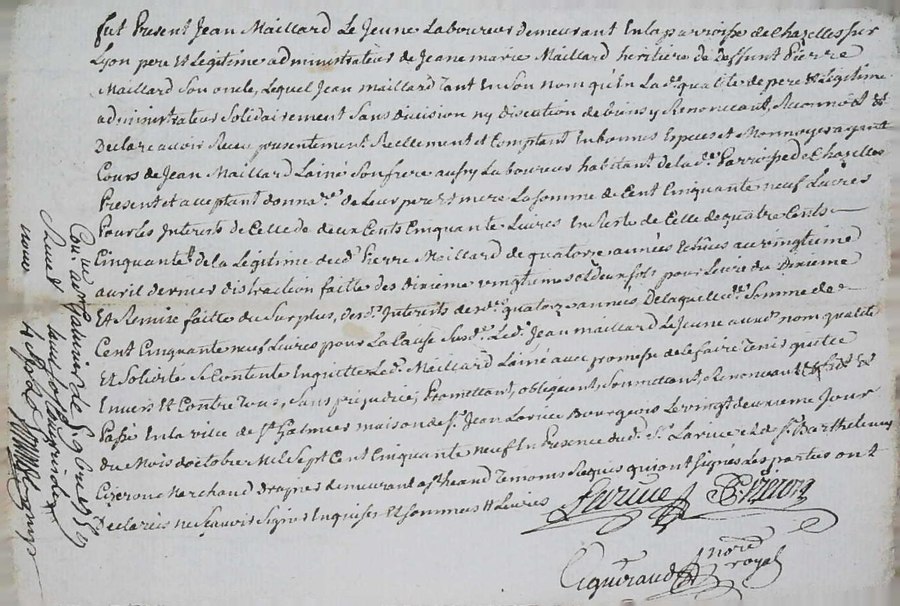 fut Present Jean Maillard Le Jeune Laboureur demeurant En la parroisse de Chazelles sur
Lyon pere Et Legitime administrateur de Jeane marie Maillard heritiere de deffunt Pierre
Maillard Son oncle, Lequel Jean maillard Tant En Son nom qu'En La de. qualite de pere Et Legitime
administrateur Solidairement Sans division ny discution de biens y Renoncant, Reconnoit Et
Declare avoir Receu presentement Reellement et Comptant En bonnes Especes et Monnoyes ayant
Cours de Jean Maillard Lainé Son frere aussy Laboureur habitant de la de. Parroisse de Chazelles
Present et acceptant donnare. de Leur pere Et mere La somme de Cent Cinquante neuf Livres
Pour les Interets de Celle de deux Cents Cinquante Livres En Reste de Celle de quatre Cents
Cinquante L de la Legitime dud. Pierre Maillard de quatorze années Echües au vingtieme
avril dernier distraction faitte des dixieme vingtiemes et deux sols pour Livre du dixieme
Et Remise faitte du Surplus, des d. Interets desd. quatorze annees De laquelle de. Somme de
Cent Cinquante neuf Livres pour La Cause Susde. Led. Jean maillard Le Jeune aud. nom qualité
Et Solidité Se Contente En quitte Led. Maillard Lainé avec promesse de Le faire Tenir quitte
Envers Et Contre Tous, Sans prejudice; Promettant, obligeant, Soumettant, Renoncant Et
Passé En la ville de St. Galmier maison de Sr. Jean Larice Bourgeois Le vingt deuxieme Jour
du Mois d'octobre Mil Sept Cent Cinquante neuf En Presence dud. Sr. Larice Et de Sr. Barthelemy
Marchand demeurant Temoins Requis qui ont Signes Les parties ont
Declarées ne Sçavoir Signer Enquises Et Sommées
nore.
royal